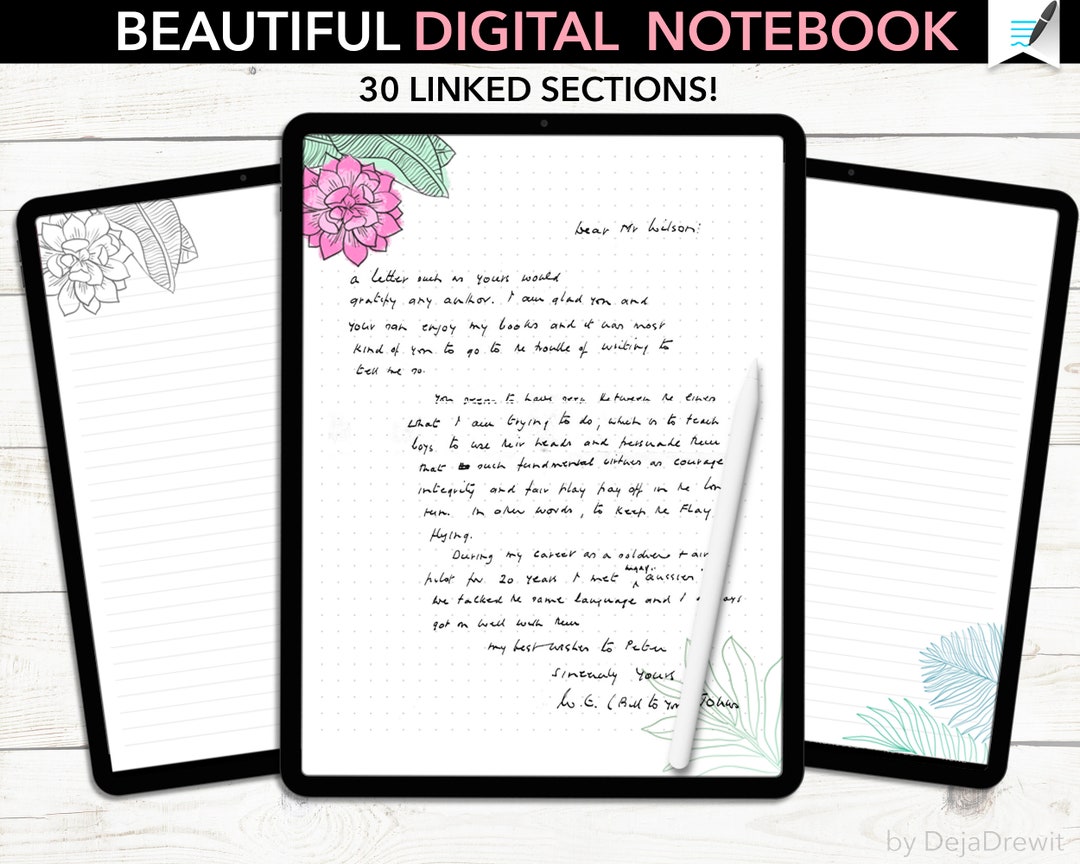 BEAUTIFUL DIGITAL NOTEBOOK
30 LINKED SECTIONS!
Dear Mr Wilson:
a letter such as yours would
gratify any author. I am glad you and
your son enjoy my books and it was most
kind of you to go to the trouble of writing to
tell me so.
You seem to have seen between the lines
what I am trying to do, which is to teach
boys to use their heads and persuade them
that such fundmental virtues as courage
integrity and fair play pay off in the lon
run. In other words, to keep the Flag
flying.
During my career as a soldier + air
pilot for 20 years I met many Aussies.
We talked the same language and I
got on well with them
my best wishes to Peter
Sincerely Yours
W.E. (Bill to you) Johns
by DejaDrewit